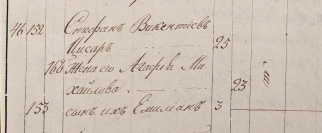 46 152 Стефанъ Викентіевъ
Цисарь 25
168 Жена его Агафія Ми
хайлова 23
153 сынъ ихъ Емиліанъ 3